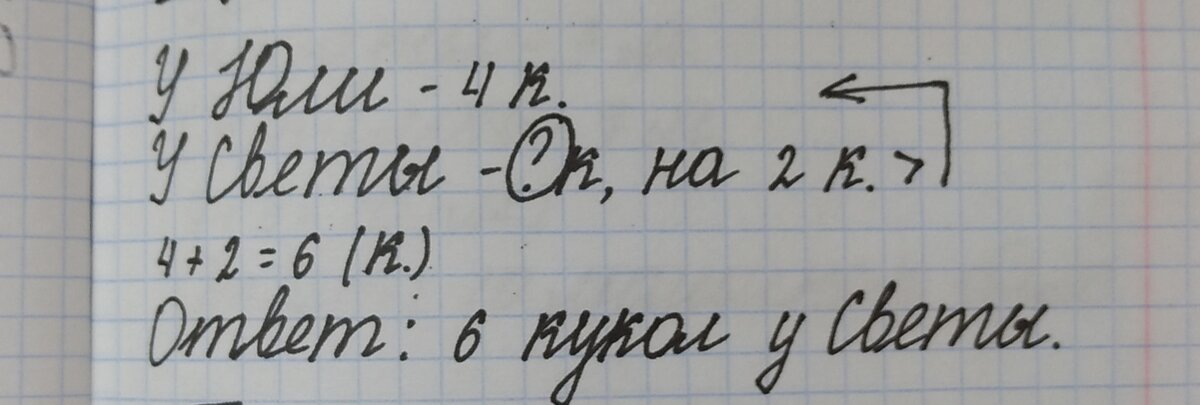 У Юли - 4 к.
У Светы - ? к, на 2 к. >
4 + 2 = 6 (к.)
Ответ: 6 кукол у Светы.